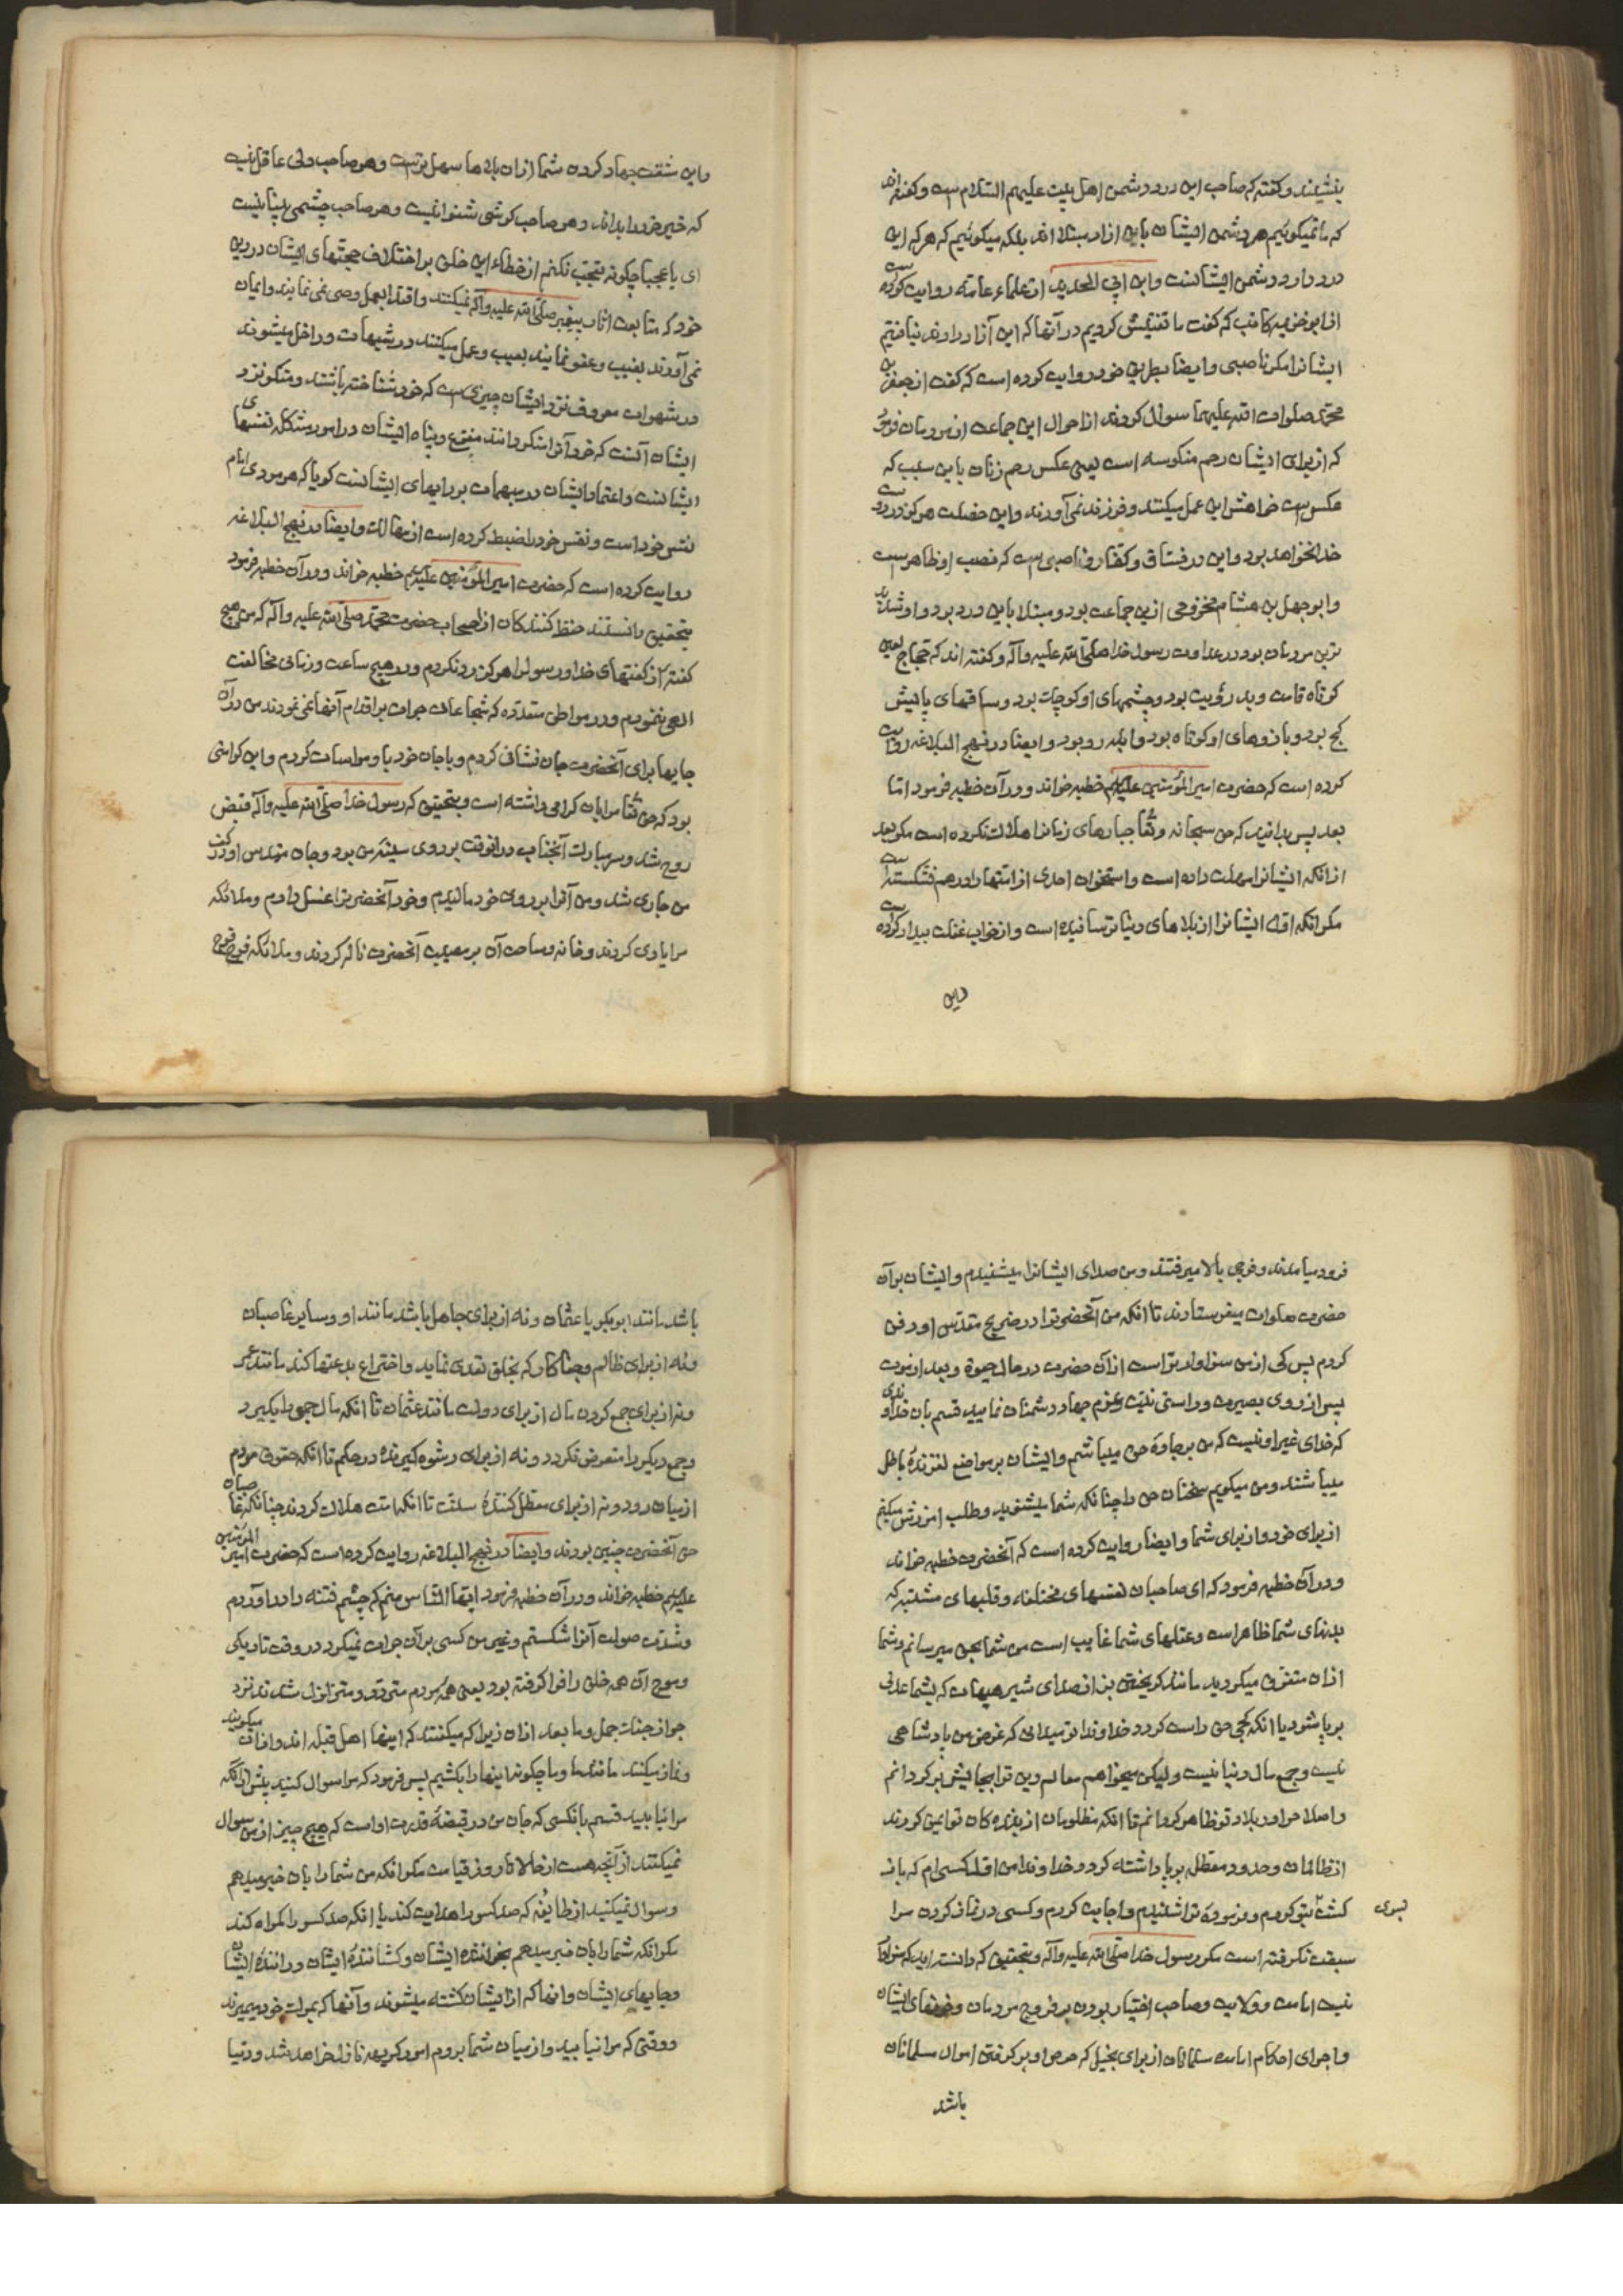 بنشینند و گفته که صاحب این درد دشمن اهل بیت علیهم السلام است و گفته اند
که ما نمیگوئیم هر دشمن ایشان باین ازاد مبتلا اند بلکه میگوئیم که هر که این
درد دارد دشمن ایشانست و ابن ابی الحدید از علماء عامه روایت کرده است
از ابو خزیمه کاتب که گفت ما تفتیش کردیم در آنها که این آزار دارند نیافتیم
ایشانرا مکر ناصبی و ایضا بطریق خود روایت کرده است که گفت از جعفر بن
محمد صلوات الله علیهما سوال کردند از احوال این جماعت از مردمان فرمود
که از برای ایشان رحم منکوسه است یعنی عکس رحم زنان باین سبب که
عکس است خواهش این عمل میکنند و فرزند نمی آورند و این خصلت هرگز در دوست
خدا نخواهد بود و این در فساق و کفار و ناصبی است که نصب او ظاهر است
و ابو جهل بن هشام مخزومی ازین جماعت بود و مبتلا باین درد بود و او شدید
ترین مردمان بود در عداوت رسول خدا صلی الله علیه و آله و گفته اند که حجاج لعین
کوتاه قامت و بد رؤیت بود و چشمهای او کوچک بود و ساقهای پایش
کج بود و بازوهای او کوتاه بود و ابله رو بود و ایضا در نهج البلاغه روایت
کرده است که حضرت امیر المؤمنین علیه السلم خطبه خواند و در آن خطبه فرمود اما
بعد پس بدانید که حق سبحانه و تعا جبارهای زمانرا هلاک نکرده است مگر بعد
از انکه ایشانرا مهلت داده است و استخوان احدی از امتها را درهم نشکسته است
مگر انکه اول ایشانرا از بلاهای دنیا ترسانیده است و از خواب غفلت بیدار کرده است
و این
و این مشقت جهاد کردن شما از ان بلاها سهل تر است و هر صاحب دلی عاقل نیست
که خیر خود را بداند و هر صاحب گوشی شنوا نیست و هر صاحب چشمی بینا نیست
ای یا عجبا چگونه تعجب نکنم از خطاء این خلق بر اختلاف حجتهای ایشان در دین
خود که متابعت اثار پیغمبر صلی الله علیه و آله نمیکنند و اقتدا بعمل وصی نمی نمایند و ایمان
نمی آورند بغیب و عفو نمایند بعیب و عمل میکنند در شبهات و داخل میشوند
در شهوات معروف نزد ایشان چیزی است که خود شناخته باشند و منکر نزد
ایشان آنست که خود آنرا منکر دانند مفزع و پناه ایشان در امور مشکله نفسهای
ایشانست و اعتماد ایشان در مبهمات بر رایهای ایشانست گویا که هر مردی امام
نفس خود است و نفس خود را ضبط کرده است از مهالک و ایضا در نهج البلاغه
روایت کرده است که حضرت امیر المؤمنین علیه السلم خطبه خواند و در آن خطبه فرمود
بتحقیق دانستند حفظ کنندگان از اصحاب حضرت محمد صلی الله علیه و آله که من هیچ
گفته از گفتهای خدا و رسول را هرگز رد نکردم و در هیچ ساعت و زمانی مخالفت
الهی ننمودم و در مواطن متعدده که شجاعان جرات بر اقدام آنها نمی نمودند من در آن
جایها برای آنحضرت جان فشانی کردم و با جان خود با او مواسات کردم و این کرامتی
بود که حق تعا مرا بان گرامی داشته است و بتحقیق که رسول خدا صلی الله علیه و آله قبض
روح شد و سر مبارک آنجناب در انوقت بر روی سینه من بود و جان مقدس او در کف
من جاری شد و من آنرا بر روی خود مالیدم و خود آنحضرترا غسل دادم و ملائکه
مرا یاری کردند و خانه و ساحت آن بر مصیبت آنحضرت ناله کردند و ملائکه فوج فوج
فرود میامدند و فوجی بالا میرفتند و من صدای ایشانرا میشنیدم و ایشان بر آن
حضرت صلوات میفرستادند تا انکه من آنحضرترا در ضریح مقدس او دفن
کردم پس کی از من سزاوارتر است از آن حضرت در حال حیوة و بعد از موت
پس از روی بصیرت و راستی نیت و عزم جهاد دشمنان نمایید قسم بان خداوندی
که خدای غیر او نیست که من بر جادهٔ حق میباشم و ایشان بر مواضع لغزندهٔ باطل
میباشند و من میگویم سخنان حق را چنانکه شما میشنوید و طلب امرزش میکنم
از برای خود و از برای شما و ایضا روایت کرده است که آنحضرت خطبه خواند
و در آن خطبه فرمود که ای صاحبان نفسهای مختلفه و قلبهای متشتته که
بدنهای شما ظاهر است و عقلهای شما غایب است من شما را بحق میرسانم و شما
از ان متفرق میگردید مانند گریختن بز از صدای شیر هیهات که بشما عدلی
بر پا شود یا انکه کجی حق راست گردد خداوندا تو میدانی که غرض من پادشاهی
نیست و جمع مال دنیا نیست و لیکن میخواهم معالم دین ترا بجایش برگردانم
و اصلاح را در بلاد تو ظاهر گردانم تا انکه مظلومان از بندهکان تو ایمن گردند
از ظالمان و حدود معطل بر پا داشته گردد خداوندا من اول کسی ام که بازگشت
بتو کردم و فرمودهٔ ترا شنیدم و اجابت کردم و کسی در نماز کردن مرا
بسوی
سبقت نگرفته است مگر رسول خدا صلی الله علیه و آله و بتحقیق که دانسته اید که سزاوار
نیست امامت و ولایت و صاحب اختیار بودن بر فروج مردمان و خونهای ایشان
و اجرای احکام امامت مسلمانان از برای بخیل که حرص او بر گرفتن اموال مسلمانان
باشد
باشد مانند ابوبکر یا عثمان و نه از برای جاهل باشد مانند او و سایر غاصبان
و نه از برای ظالم و جفاکار که بخلق تعدی نماید و اختراع بدعتها کند مانند عمر
و نه از برای جمع کردن مال از برای دولت مانند عثمان تا انکه مال جمعی را بگیرد
و جمع دیگر را متعرض نگردد و نه از برای رشوه گیرنده در حکم تا انکه حقوق مردم
از میان رود و نه از برای معطل کنندهٔ سنت تا انکه امت هلاک گردند چنانکه غاصبان
حق آنحضرت چنین بودند و ایضا در نهج البلاغه روایت کرده است که حضرت امیر المؤمنین
علیه السلم خطبه خواند و در آن خطبه فرمود ایها الناس منم که چشم فتنه را در اوردم
و شدت صولت آنرا شکستم و غیر من کسی بر آن جرات نمیکرد در وقت تاریکی
و موج آن همه خلق را فرا گرفته بود یعنی همه مردم متردد و متزلزل شدند نزد
جواز جنگ جمل و ما بعد از ان زیرا که میگفتند که اینها اهل قبله اند و اذان میگویند
و نماز میکنند مانند ما و ما چگونه اینها را بکشیم پس فرمود که مرا سوال کنید پیش از انکه
مرا نیابید قسم بانکسی که جان من در قبضهٔ قدرت او است که هیچ چیز از من سوال
نمیکنند از آنچه هست از حالا تا روز قیامت مگر انکه من شما را بان خبر میدهم
و سوال نمیکنید از طایفه که صد کس را هدایت کند یا انکه صد کس را گمراه کند
مگر انکه شما را بان خبر میدهم بخوانندهٔ ایشان و کشانندهٔ ایشان و رانندهٔ ایشان
و جایهای ایشان و انها که از ایشان کشته میشوند و آنها که بمرگ خود میمیرند
و وقتی که مرا نیابید و از میان شما بروم امور کریهه نازل خواهد شد و دنیا